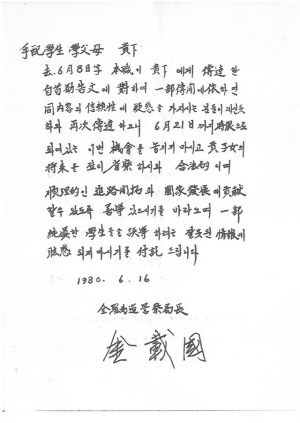 手配學生 學父母 貴下
去 6月8日字 本職이 貴下 에게 傳達 한
自首勸告文 에 對하여 一部 傳聞에 依하면
同內容의 信憑性에 疑惑을 가지시는 분들이
하와 再次 傳達 하오니 6月21日까지
있는 이번 機會를 놓치지 마시고 貴子女의
將來를 깊이 하시와 合法的 이며
順理的인 進路開拓과 國家發展에 貢獻
할수 있도록 善導 있으시기를 바라오며 一部
學生들을 하려는 잘못된 情報에
眩惑 되지마시기를 付託 드립니다
1980. 6. 16
全羅南道警察局長
金載國